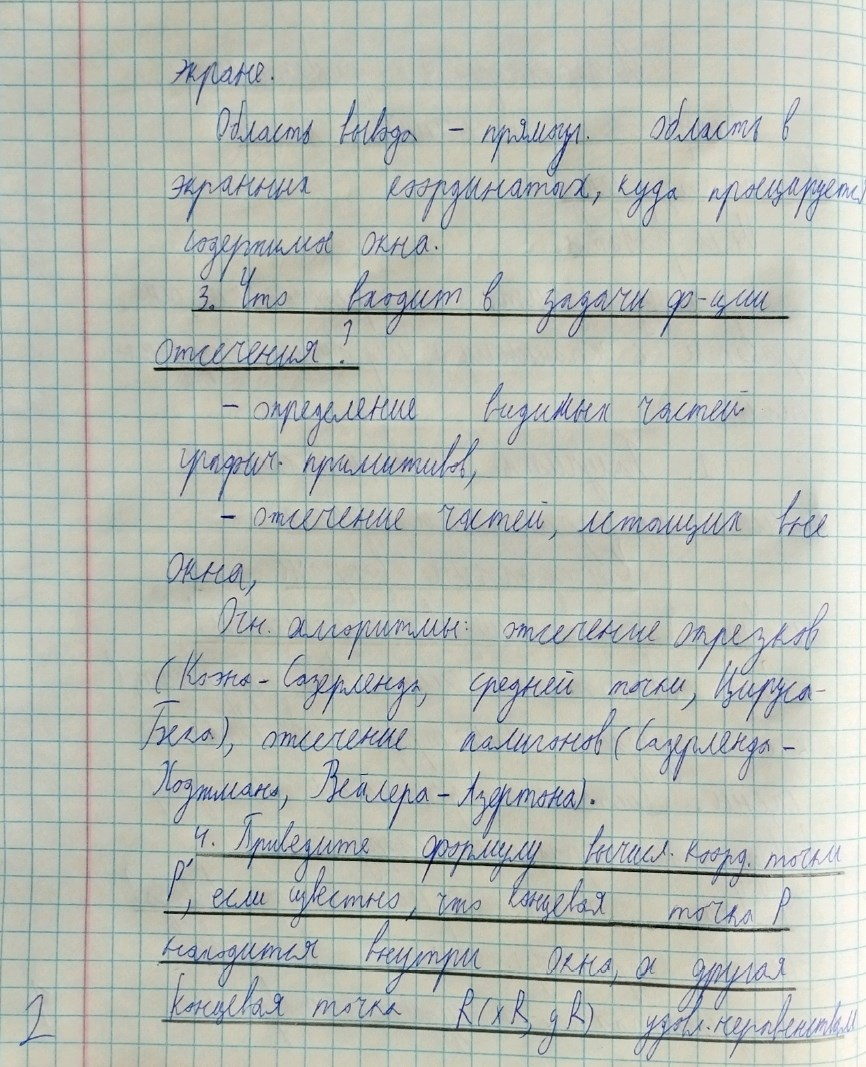 экране.
Область вывода – прямоуг. область в
экранных координатах, куда проецируется
содержимое окна.
3. Что входит в задачи ф-ции
отсечения?
– определение видимых частей
графич. примитивов,
– отсечение частей, лежащих вне
окна,
Осн. алгоритмы: отсечение отрезков
(Коэна-Сазерленда, средней точки, Цируса-
Бека), отсечение полигонов (Сазерленда-
Ходжмана, Вейлера-Азертона).
4. Приведите формулу вычисл. коорд. точки
P', если известно, что концевая точка P
находится внутри окна, а другая
концевая точка R(xR, yR) удовл. неравенствам
2